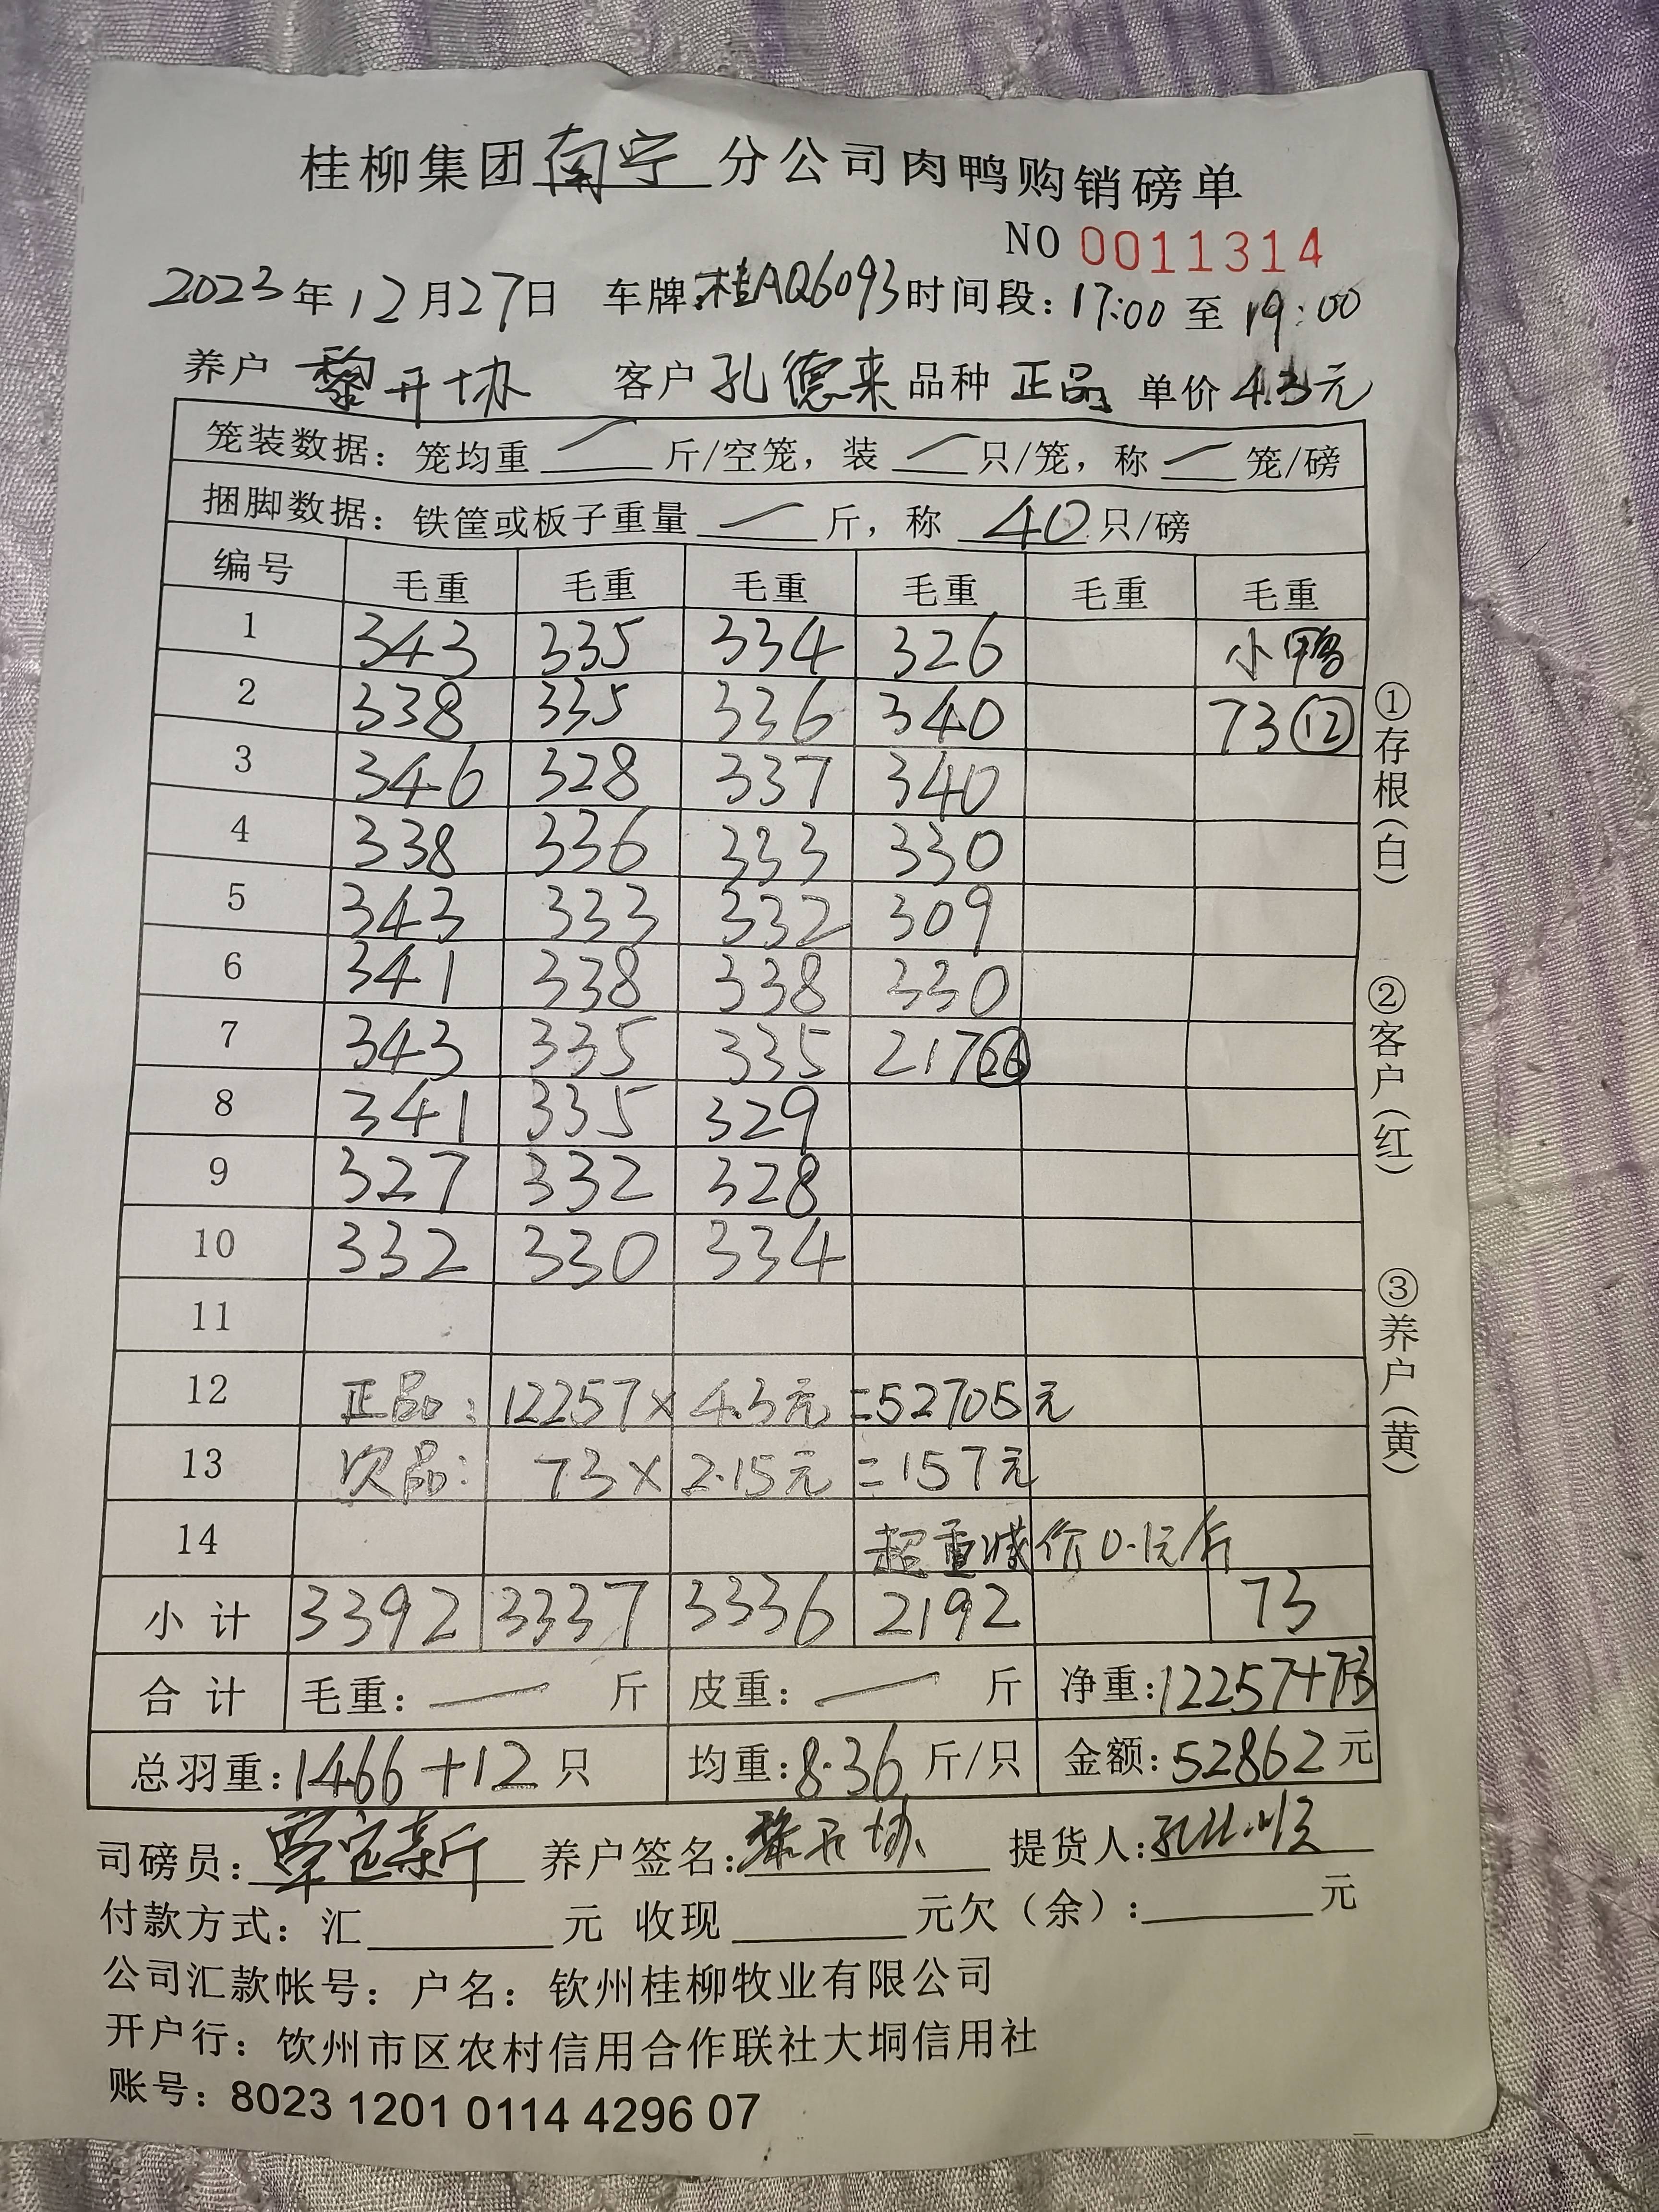 桂柳集团南宁分公司肉鸭购销磅单
NO 0011314
2023年12月27日 车牌:桂AQ6093时间段:17:00至19:00
养户 黎开协 客户 孔德来 品种 正品 单价4.3元
笼装数据:笼均重 — 斤/空笼,装 — 只/笼,称 — 笼/磅
捆脚数据:铁筐或板子重量 — 斤,称 40 只/磅
编号 毛重 毛重 毛重 毛重 毛重 毛重
1 343 335 334 326 小鸭
2 338 335 336 340 73⑫
3 346 328 337 340
4 338 336 333 330
5 343 333 332 309
6 341 338 338 330
7 343 335 335 217㉖
8 341 335 329
9 327 332 328
10 332 330 334
11
12 正品: 12257× 4.3元 =52705元
13 次品: 73× 2.15元 =157元
14 超重减价0.1元/斤
小计 3392 3337 3336 2192 73
合计 毛重: — 斤 皮重: — 斤 净重:12257+73
总羽重:1466+12只 均重:8.36斤/只 金额:52862元
司磅员: 养户签名:黎开协 提货人:
付款方式:汇 元 收现 元欠(余): 元
公司汇款帐号:户名:钦州桂柳牧业有限公司
开户行:钦州市区农村信用合作联社大垌信用社
账号:8023 1201 0114 4296 07
①存根(白)
②客户(红)
③养户(黄)